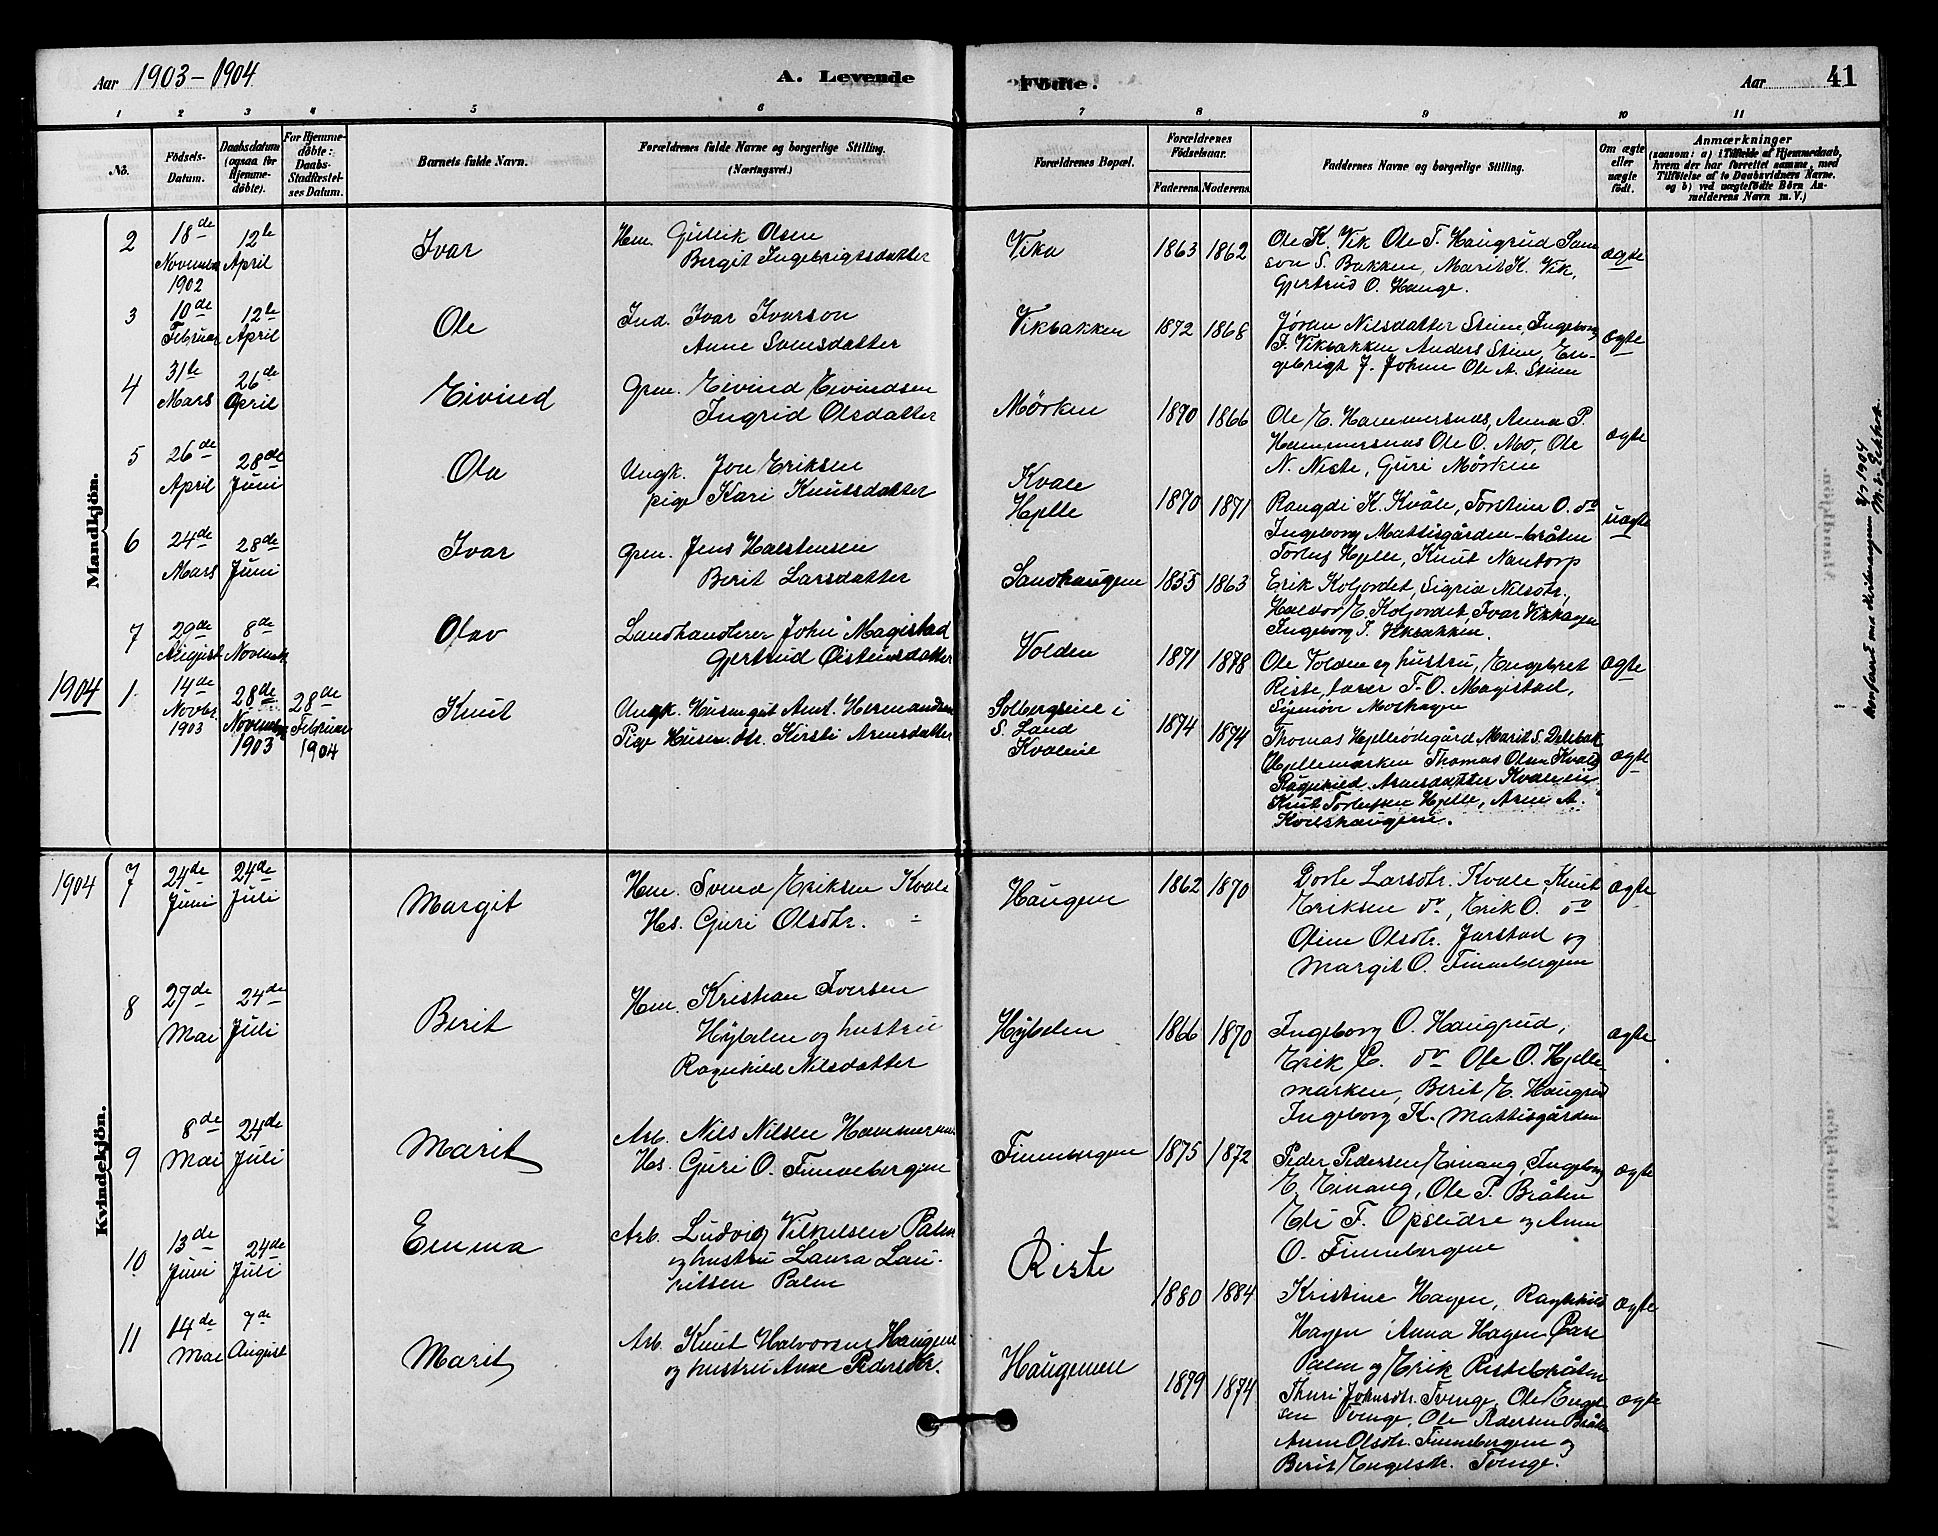 Aar 1903-1904
A. Levende
Fødte.
Aar
41
1 2 3 4 5 6 7 8 9 10 11
No.
Fødsels-
Datum.
Daabsdatum
(ogsaa for
Hjemme-
døbte).
For Hjemme-
døbte:
Daabs-
Stadfæstel-
ses Datum.
Barnets fulde Navn.
Forældrenes fulde Navne og borgerlige Stilling.
(Næringsvei.)
Forældrenes Bopæl.
Forældrenes
Fødselsaar.
Faderens. Moderens.
Faddernes Navne og borgerlige Stilling.
Om ægte
eller
uægte
født.
Anmærkninger
(saasom: a) i Tilfælde af Hjemmedaab,
hvem der har forrettet samme, med
Tilføielse af to Daabsvidners Navne.
og b) ved uægtefødte Børn An-
melderens Navn m. V.)
Mandkjøn.
2
18de
Novembr
1902
12te
April
Ivar
Hem. Gullik Olsen
Bergit Ingebrigtsdatter
Vika
1863 1862
Ole K. Vik Ole T. Haugrud Sam
son S. Bakken, Marit K. Vik,
Gjertrud O. Hauge.
ægte
3
10de
Februar
12te
April
Ole
Ind. Ivar Ivarson
Anne Svensdatter
Vikbakken
1872 1868
Jøran Nilsdatter Steine, Ingeborg
T. Vikbakken Anders Steine, En-
gebrigt J. Johne Ole A. Steine
ægte
4
31te
Mars
26de
April
Eivind
Grm. Eivind Eivindsen
Ingrid Olsdatter
Mörken
1870 1866
Ole E. Hammersnes, Anna P.
Hammersnes Ole O. Mo, Ole
N. Neste, Guri Mörken
ægte
5
26de
April
28de
Juni
Ola
Ungk. Jon Eriksen
pige Kari Knutsdatter
Kvale
Hjelle
1870 1871
Rangdi K. Kvåle, Torstein O. do
Ingeborg Mattisgården-bråten
Torleif Hjelle, Knut Nantorp
uægte
6
24de
Mars
28de
Juni
Ivar
Grm. Jens Halstensen
Berit Larsdatter
Sandhaugene
1855 1863
Erik Koljordet, Sigrid Nilsdtr.,
Haldor E. Koljordet, Ivar Vikhagen
Ingeborg T. Vikbakken.
7
29de
August
8de
Novembr
Olav
Landhandlerer John Magistad
Gjertrud Østensdatter
Volden
1871 1878
Ole Volden og hustru, Engebret
Riste, lærer T. O. Magistad,
Synnöve Moshagen
ægte
1904
1
14de
Novbr.
1903
28de
Novembr
1903
28de
Februar
1904
Knut
Ungk. Husmgut Arnt. Hermandsen
Pige Husm.dtr. Kirsti Arnesdatter
Solbergseie i
S. Land
Kvaleie
1874 1874
Thomas Hjelleødegård Marit S. Delebak
Hjellemarken Thomas Olsen Kvale
Ragnhild Arnesdatter Kvaleeie
Knut Torleifsen Hjelle, Arne A.
Kvilshaugene.
ægte
konfarert med Kirkebogen 8/7 1904
1904
Kvindekjøn.
7
24de
Juni
24de
Juli
Margit
Hm. Svend Eriksen Kvale
Hs. Guri Olsdtr. "
Haugene
1862 1870
Dorte Larsdtr. Kvale, Knut
Eriksen do, Erik O. do
Oline Olsdtr. Jarstad og
Margit O. Finnebergene
ægte
8
27de
Mai
24de
Juli
Berit
Hm. Kristian Iversen
Høybelen og hustru
Ragnhild Nilsdatter
Høybelen
1866 1870
Ingeborg O. Haugrud,
Erik C. do Ole O. Hjelle-
marken, Berit E. Haugrud
Ingeborg K. Mattisgården
ægte
9
8de
Mai
24de
Juli
Marit
Arb. Nils Nilsen Hammersn.
Hs. Guri O. Finnebergene
Finnebergene
1875 1872
Peder Pedersen Einang, Ingeborg
E. Einang, Ole P. Bråten
Eli T. Opslidre og Anne
O. Finnebergene
ægte
10
13de
Juni
24de
Juli
Emma
Arb. Ludvig Vilhelsen Palm
og hustru Laura Lau-
ritsen Palm
Riste
1880 1884
Kristine Hagen, Ragnhild
Hagen Anna Hagen, Åse
Palm og Erik Ristebråten
ægte
11
14de
Mai
7de
August
Marit
Arb. Knut Halvorsen Haugene
og hustru Anne Pedersdtr.
Haugenen
1879 1874
Thuri Johnsdtr. Tvenge, Ole Engel
sen Tvenge, Ole Pedersen Bråten
Anne Olsdtr. Finnebergene og
Berit Engelsdtr. Tvenge.
ægte